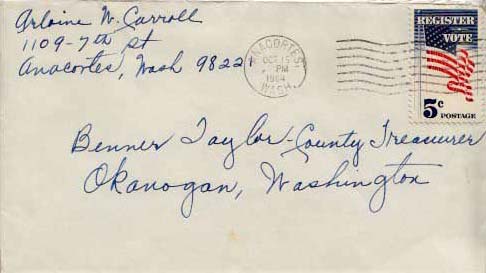 Arloine W. Carroll
1109-7th St
Anacortes, Wash 98221
ANACORTES,
OCT 15
PM
1964
WASH.
REGISTER
VOTE
5c
POSTAGE
Benner Taylor-County Treasurer
Okanogan, Washington